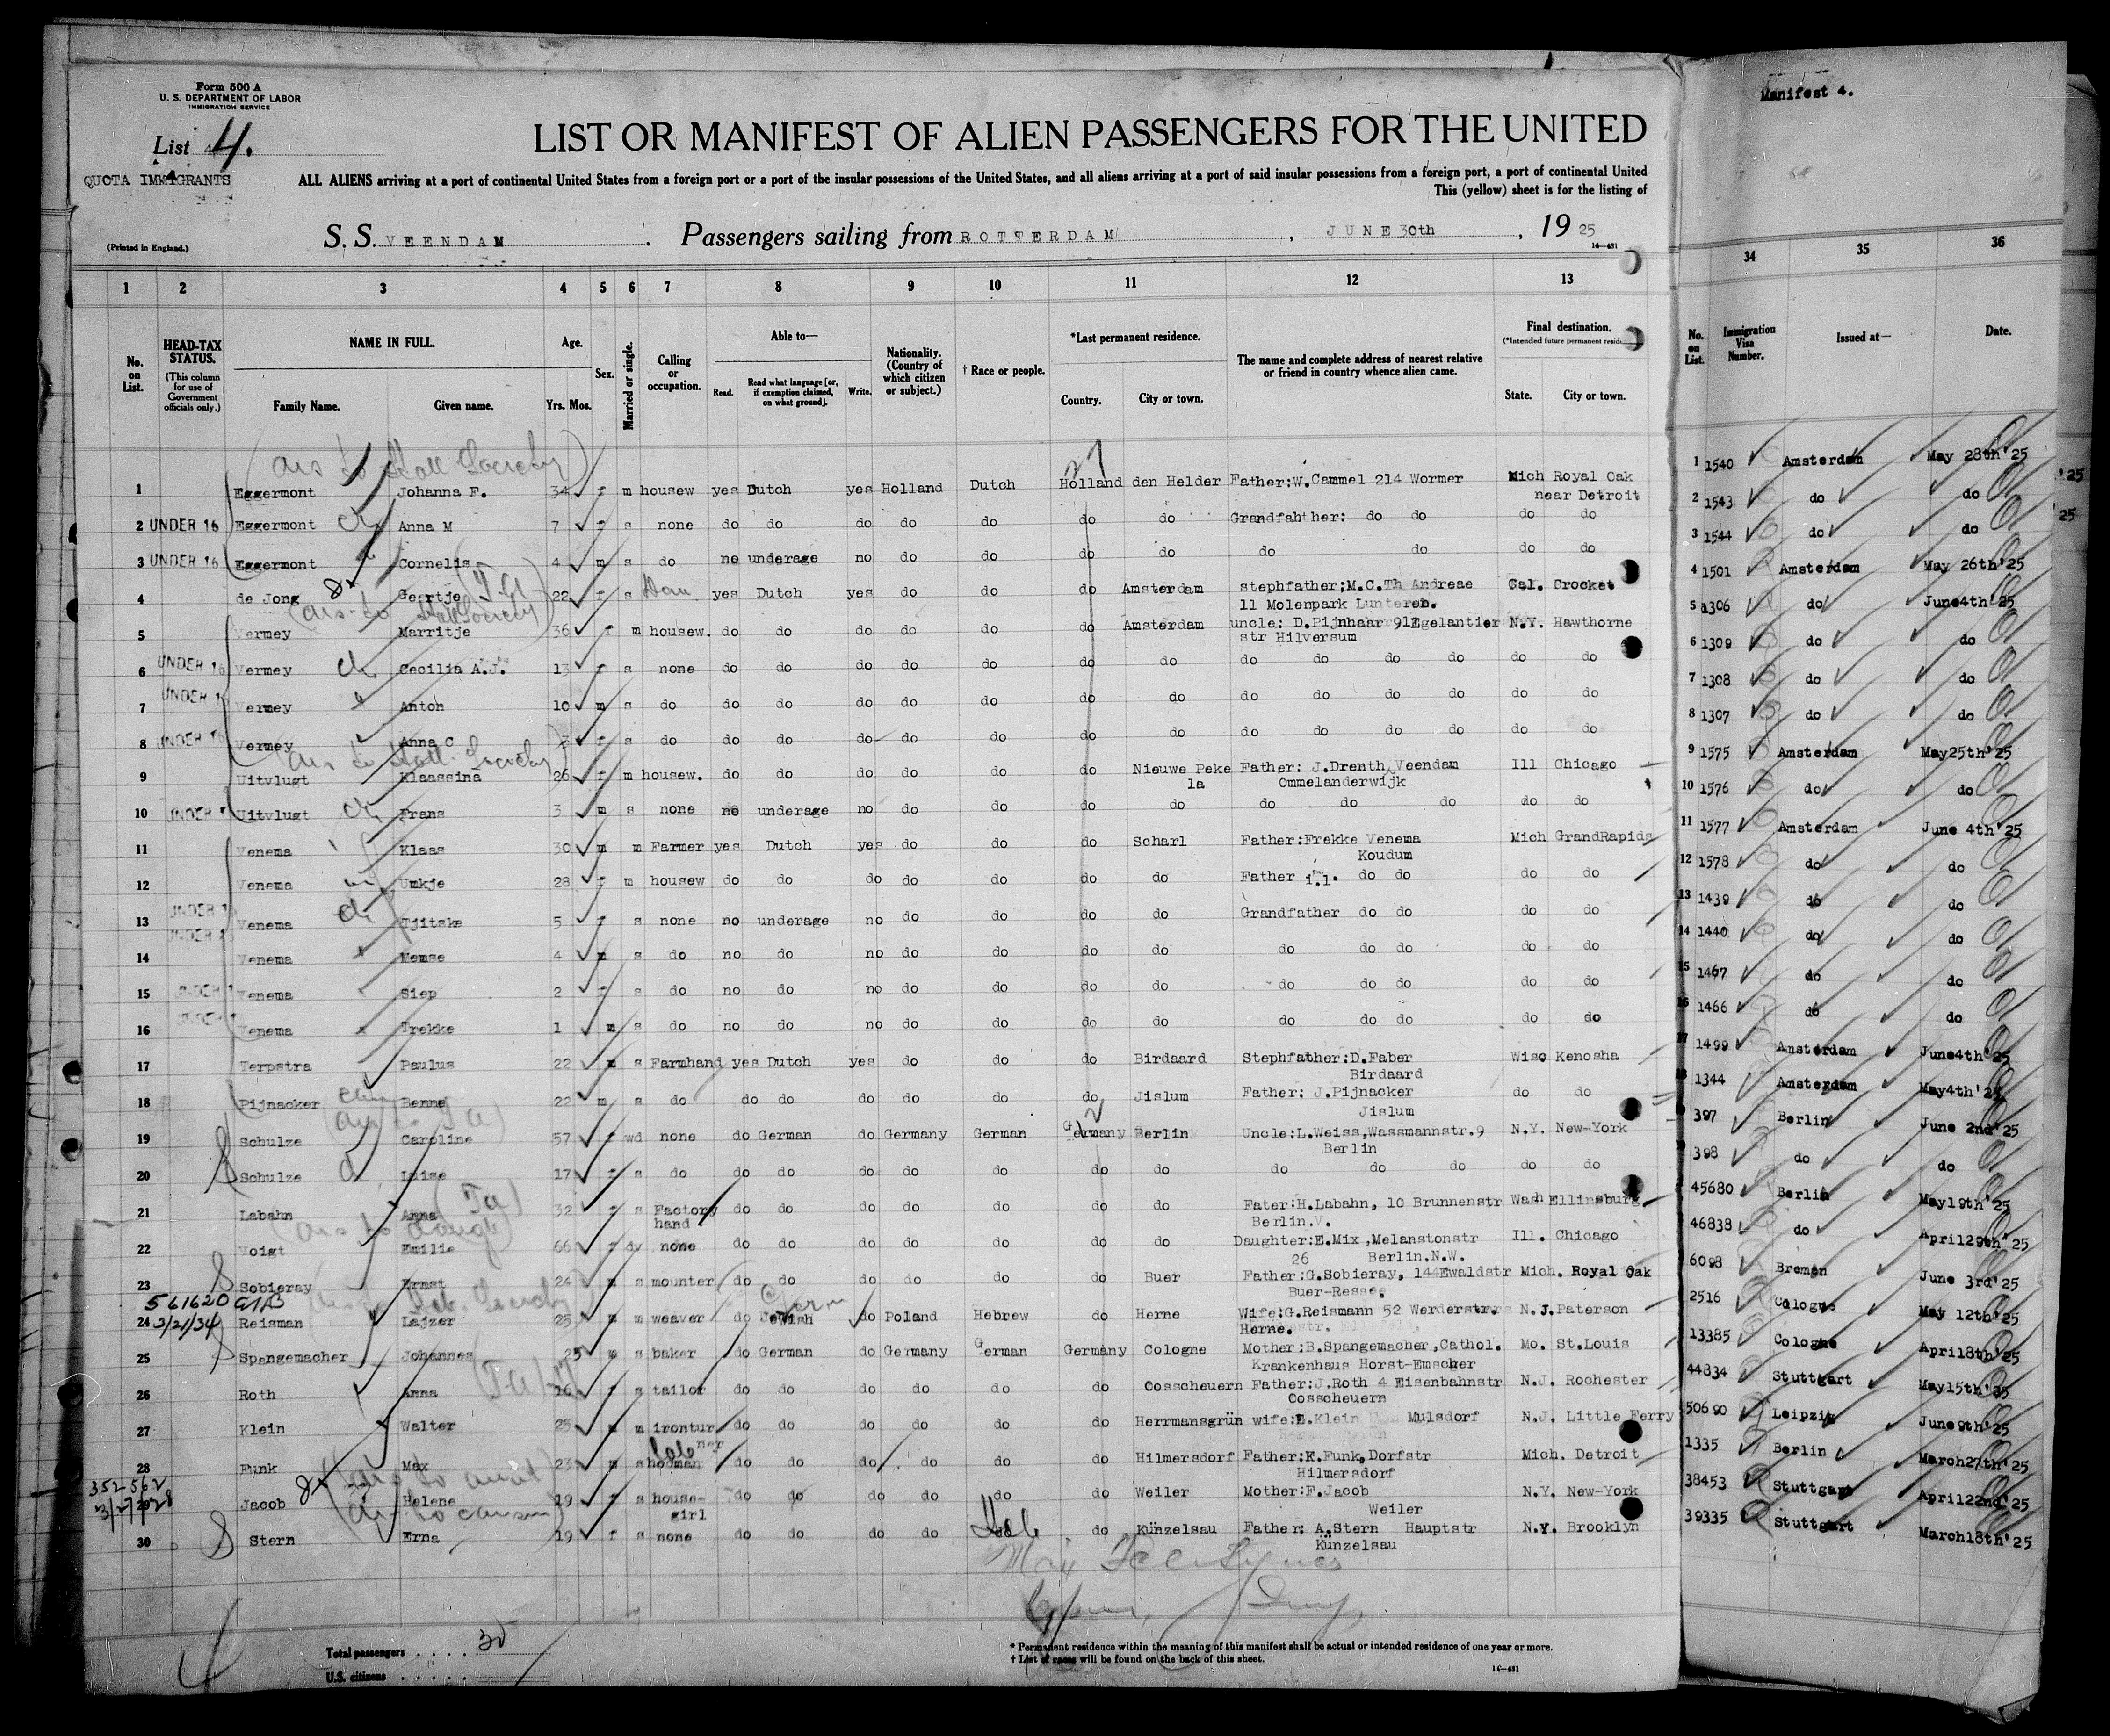 Form 500 A
U. S. DEPARTMENT OF LABOR
IMMIGRATION SERVICE
Manifest 4.
List 4.
LIST OR MANIFEST OF ALIEN PASSENGERS FOR THE UNITED
QUOTA IMMIGRANTS
ALL ALIENS arriving at a port of continental United States from a foreign port or a port of the insular possessions of the United States, and all aliens arriving at a port of said insular possessions from a foreign port, a port of continental United
This (yellow) sheet is for the listing of
(Printed in England.)
S. S. VEENDAM . Passengers sailing from ROTTERDAM , JUNE 30th , 19 25
14-431
1 2 3 4 5 6 7 8 9 10 11 12 13 34 35 36
No. on List. HEAD-TAX STATUS. (This column for use of Government officials only.) NAME IN FULL. Family Name. Given name. Age. Yrs. Mos. Sex. Married or single. Calling or occupation. Able to— Read. Read what language [or, if exemption claimed, on what ground]. Write. Nationality. (Country of which citizen or subject.) † Race or people. *Last permanent residence. Country. City or town. The name and complete address of nearest relative or friend in country whence alien came. Final destination. (*Intended future permanent resid State. City or town. No. on List. Immigration Visa Number. Issued at— Date.
1 Eggermont Johanna F. 34 f m housew yes Dutch yes Holland Dutch Holland den Helder Father:W.Cammel 214 Wormer Mich Royal Oak 1 1540 Amsterdam May 28th'25
near Detroit
2 UNDER 16 Eggermont Anna M 7 f s none do do do do do do do Grandfahther: do do do do 2 1543 do do
3 UNDER 16 Eggermont Cornelis 4 m s do no underage no do do do do do do do do 3 1544 do do
4 de Jong Geertje 22 f s yes Dutch yes do do do Amsterdam stephfather;M.C.Th Andreae Cal. Crocket 4 1501 Amsterdam May 26th'25
11 Molenpark Lunteren.
5 Vermey Marritje 36 f m housew. do do do do do do Amsterdam uncle: D.Pijnhaar 91Egelantier N.Y. Hawthorne 5 1306 do June4th'25
str Hilversum
6 UNDER 16 Vermey Cecilia A.J. 13 f s none do do do do do do do do do do do do do 6 1309 do do
7 UNDER 16 Vermey Anton 10 m s do do do do do do do do do do do do do do 7 1308 do do
8 UNDER 16 Vermey Anna C f s do do do do do do do do do do do do do do 8 1307 do do
9 Uitvlugt Klaassina 26 f m housew. do do do do do do Nieuwe Peke Father: J.Drenth Veendam Ill Chicago 9 1575 Amsterdam May25th'25
la Ommelanderwijk
10 UNDER Uitvlugt Frans 3 m s none no underage no do do do do do do do do do 10 1576 do do
11 Venema Klaas 30 m m Farmer yes Dutch yes do do do Scharl Father:Frekke Venema Mich GrandRapids 11 1577 Amsterdam June 4th'25
Koudum
12 Venema Umkje 28 f m housew do do do do do do do Father i.l. do do do do 12 1578 do do
13 UNDER 16 Venema Tjitske 5 f s none no underage no do do do do Grandfather do do do do 13 1439 do do
14 Venema Memse 4 m s do no do no do do do do do do do do do 14 1440 do do
15 UNDER 1 Venema Siep 2 f s do no do no do do do do do do do do do 15 1467 do do
16 Venema Frekke 1 m s do no do no do do do do do do do do do 16 1466 do do
17 Terpstra Paulus 22 m s Farmhand yes Dutch yes do do do Birdaard Stephfather:D.Faber Wisc Kenosha 1499 Amsterdam June4th'25
Birdaard
18 Pijnacker Benne 22 m s do do do do do do do Jislum Father: J.Pijnacker do do 1344 Amsterdam May4th'25
Jislum
19 Schulze Caroline 57 f wd none do German do Germany German Germany Berlin Uncle:L.Weiss,Wassmannstr.9 N.Y. New-York 397 Berlin June 2nd'25
Berlin
20 Schulze Luise 17 f s do do do do do do do do do do do do do 398 do do
21 Labahn Anna 32 f s Factory do do do do do do do Fater:H.Labahn, 10 Brunnenstr Wash Ellinsburg 45680 Berlin May19th'25
hand Berlin.V.
22 Voigt Emilie 66 f dv none do do do do do do do Daughter:E.Mix,Melanstonstr Ill. Chicago 46838 do April29th'25
26 Berlin.N.W.
23 Sobieray Ernst 24 m s mounter do do do do do do Buer Father:G.Sobieray, 144Ewaldstr Mich. Royal Oak 6098 Bremen June 3rd'25
Buer-Resse
561620
24 3/21/34 Reisman Lajzer 25 m m weaver do Jewish do Poland Hebrew do Herne Wife:G.Reismann 52 Werderstr. N.J.Paterson 2516 Cologne May 12th'25
Herne.
25 Spangemacher Johannes 25 m s baker do German do Germany German Germany Cologne Mother:B.Spangemacher,Cathol. Mo. St.Louis 13385 Cologne April8th'25
Krankenhaus Horst-Emscher
26 Roth Anna 26 f s tailor do do do do do do Cosscheuern Father:J.Roth 4 Eisenbahnstr N.J. Rochester 44834 Stuttgart May15th'25
Cosscheuern
27 Klein Walter 25 m m irontur do do do do do do Herrmansgrün wife:E.Klein Mulsdorf N.J. Little Ferry 50690 Leipzig June9th'25
ner
28 Funk Max 23 m s hodman do do do do do do Hilmersdorf Father:K.Funk,Dorfstr Mich. Detroit 1335 Berlin March27th'25
Hilmersdorf
352562
3/27/28 Jacob Helene 19 f s house- do do do do do do Weiler Mother:F.Jacob N.Y. New-York 38453 Stuttgart April22nd'25
girl Weiler
30 Stern Erna 19 f s none do do do do Heb do Künzelsau Father: A.Stern Hauptstr N.Y. Brooklyn 39335 Stuttgart March18th'25
Künzelsau
Total passengers . . . . 30
U.S. citizens . . . . .
* Permanent residence within the meaning of this manifest shall be actual or intended residence of one year or more.
† List of races will be found on the back of this sheet.
14-431